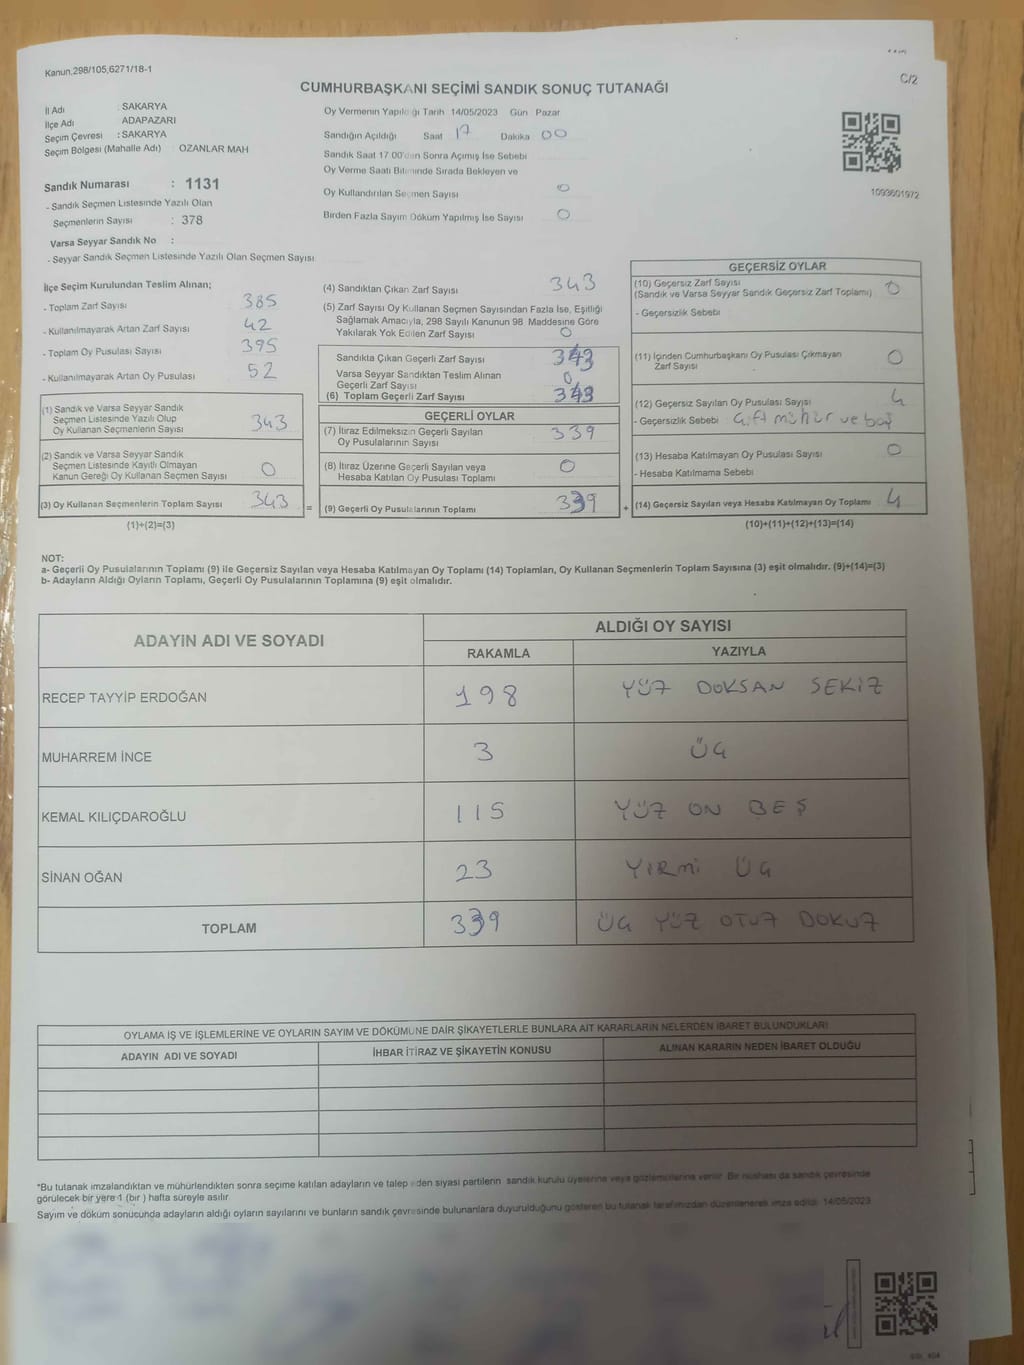 Kanun,298/105,6271/18-1
C/2
CUMHURBAŞKANI SEÇİMİ SANDIK SONUÇ TUTANAĞI
İl Adı : SAKARYA
İlçe Adı ADAPAZARI
Seçim Çevresi : SAKARYA
Seçim Bölgesi (Mahalle Adı) : OZANLAR MAH
Sandık Numarası : 1131
- Sandık Seçmen Listesinde Yazılı Olan
Seçmenlerin Sayısı : 378
Varsa Seyyar Sandık No :
- Seyyar Sandık Seçmen Listesinde Yazılı Olan Seçmen Sayısı
Oy Vermenin Yapıldığı Tarih 14/05/2023 Gün Pazar
Sandığın Açıldığı Saat 17 Dakika 00
Sandık Saat 17 00'dan Sonra Açımış İse Sebebi
Oy Verme Saati Bitiminde Sırada Bekleyen ve
Oy Kullandırılan Seçmen Sayısı 0
Birden Fazla Sayım Döküm Yapılmış İse Sayısı 0
1093601972
İlçe Seçim Kurulundan Teslim Alınan;
- Toplam Zarf Sayısı 385
- Kullanılmayarak Artan Zarf Sayısı 42
- Toplam Oy Pusulası Sayısı 395
- Kullanılmayarak Artan Oy Pusulası 52
(1) Sandık ve Varsa Seyyar Sandık
Seçmen Listesinde Yazılı Olup
Oy Kullanan Seçmenlerin Sayısı 343
(2) Sandık ve Varsa Seyyar Sandık
Seçmen Listesinde Kayıtlı Olmayan
Kanun Gereği Oy Kullanan Seçmen Sayısı 0
(3) Oy Kullanan Seçmenlerin Toplam Sayısı 343
(1)+(2)=(3)
=
(4) Sandıktan Çıkan Zarf Sayısı 343
(5) Zarf Sayısı Oy Kullanan Seçmen Sayısından Fazla İse, Eşitliği
Sağlamak Amacıyla, 298 Sayılı Kanunun 98 Maddesine Göre
Yakılarak Yok Edilen Zarf Sayısı 0
Sandıkta Çıkan Geçerli Zarf Sayısı 343
Varsa Seyyar Sandıktan Teslim Alınan
Geçerli Zarf Sayısı 0
(6) Toplam Geçerli Zarf Sayısı 343
GEÇERLİ OYLAR
(7) İtiraz Edilmeksizin Geçerli Sayılan
Oy Pusulalarının Sayısı 339
(8) İtiraz Üzerine Geçerli Sayılan veya
Hesaba Katılan Oy Pusulası Toplamı 0
(9) Geçerli Oy Pusulalarının Toplamı 339
+
GEÇERSİZ OYLAR
(10) Geçersiz Zarf Sayısı
(Sandık ve Varsa Seyyar Sandık Geçersiz Zarf Toplamı) 0
- Geçersizlik Sebebi
(11) İçinden Cumhurbaşkanı Oy Pusulası Çıkmayan
Zarf Sayısı 0
(12) Geçersiz Sayılan Oy Pusulası Sayısı 4
- Geçersizlik Sebebi Çift mühür ve boş
(13) Hesaba Katılmayan Oy Pusulası Sayısı 0
- Hesaba Katılmama Sebebi
(14) Geçersiz Sayılan veya Hesaba Katılmayan Oy Toplamı 4
(10)+(11)+(12)+(13)=(14)
NOT:
a- Geçerli Oy Pusulalarının Toplamı (9) ile Geçersiz Sayılan veya Hesaba Katılmayan Oy Toplamı (14) Toplamları, Oy Kullanan Seçmenlerin Toplam Sayısına (3) eşit olmalıdır. (9)+(14)=(3)
b- Adayların Aldığı Oyların Toplamı, Geçerli Oy Pusulalarının Toplamına (9) eşit olmalıdır.
ADAYIN ADI VE SOYADI
ALDIĞI OY SAYISI
RAKAMLA YAZIYLA
RECEP TAYYİP ERDOĞAN 198 YÜZ DOKSAN SEKİZ
MUHARREM İNCE 3 ÜÇ
KEMAL KILIÇDAROĞLU 115 YÜZ ON BEŞ
SİNAN OĞAN 23 YİRMİ ÜÇ
TOPLAM 339 ÜÇ YÜZ OTUZ DOKUZ
OYLAMA İŞ VE İŞLEMLERİNE VE OYLARIN SAYIM VE DÖKÜMÜNE DAİR ŞİKAYETLERLE BUNLARA AİT KARARLARIN NELERDEN İBARET BULUNDUKLARI
ADAYIN ADI VE SOYADI İHBAR İTİRAZ VE ŞİKAYETİN KONUSU ALINAN KARARIN NEDEN İBARET OLDUĞU
*Bu tutanak imzalandıktan ve mühürlendikten sonra seçime katılan adayların ve talep eden siyasi partilerin sandık kurulu üyelerine veya gözlemcilerine verilir. Bir nüshası da sandık çevresinde
görülecek bir yere 1 (bir) hafta süreyle asılır
Sayım ve döküm sonucunda adayların aldığı oyların sayılarını ve bunların sandık çevresinde bulunanlara duyurulduğunu gösteren bu tutanak tarafımızdan düzenlenerek imza edildi. 14/05/2023